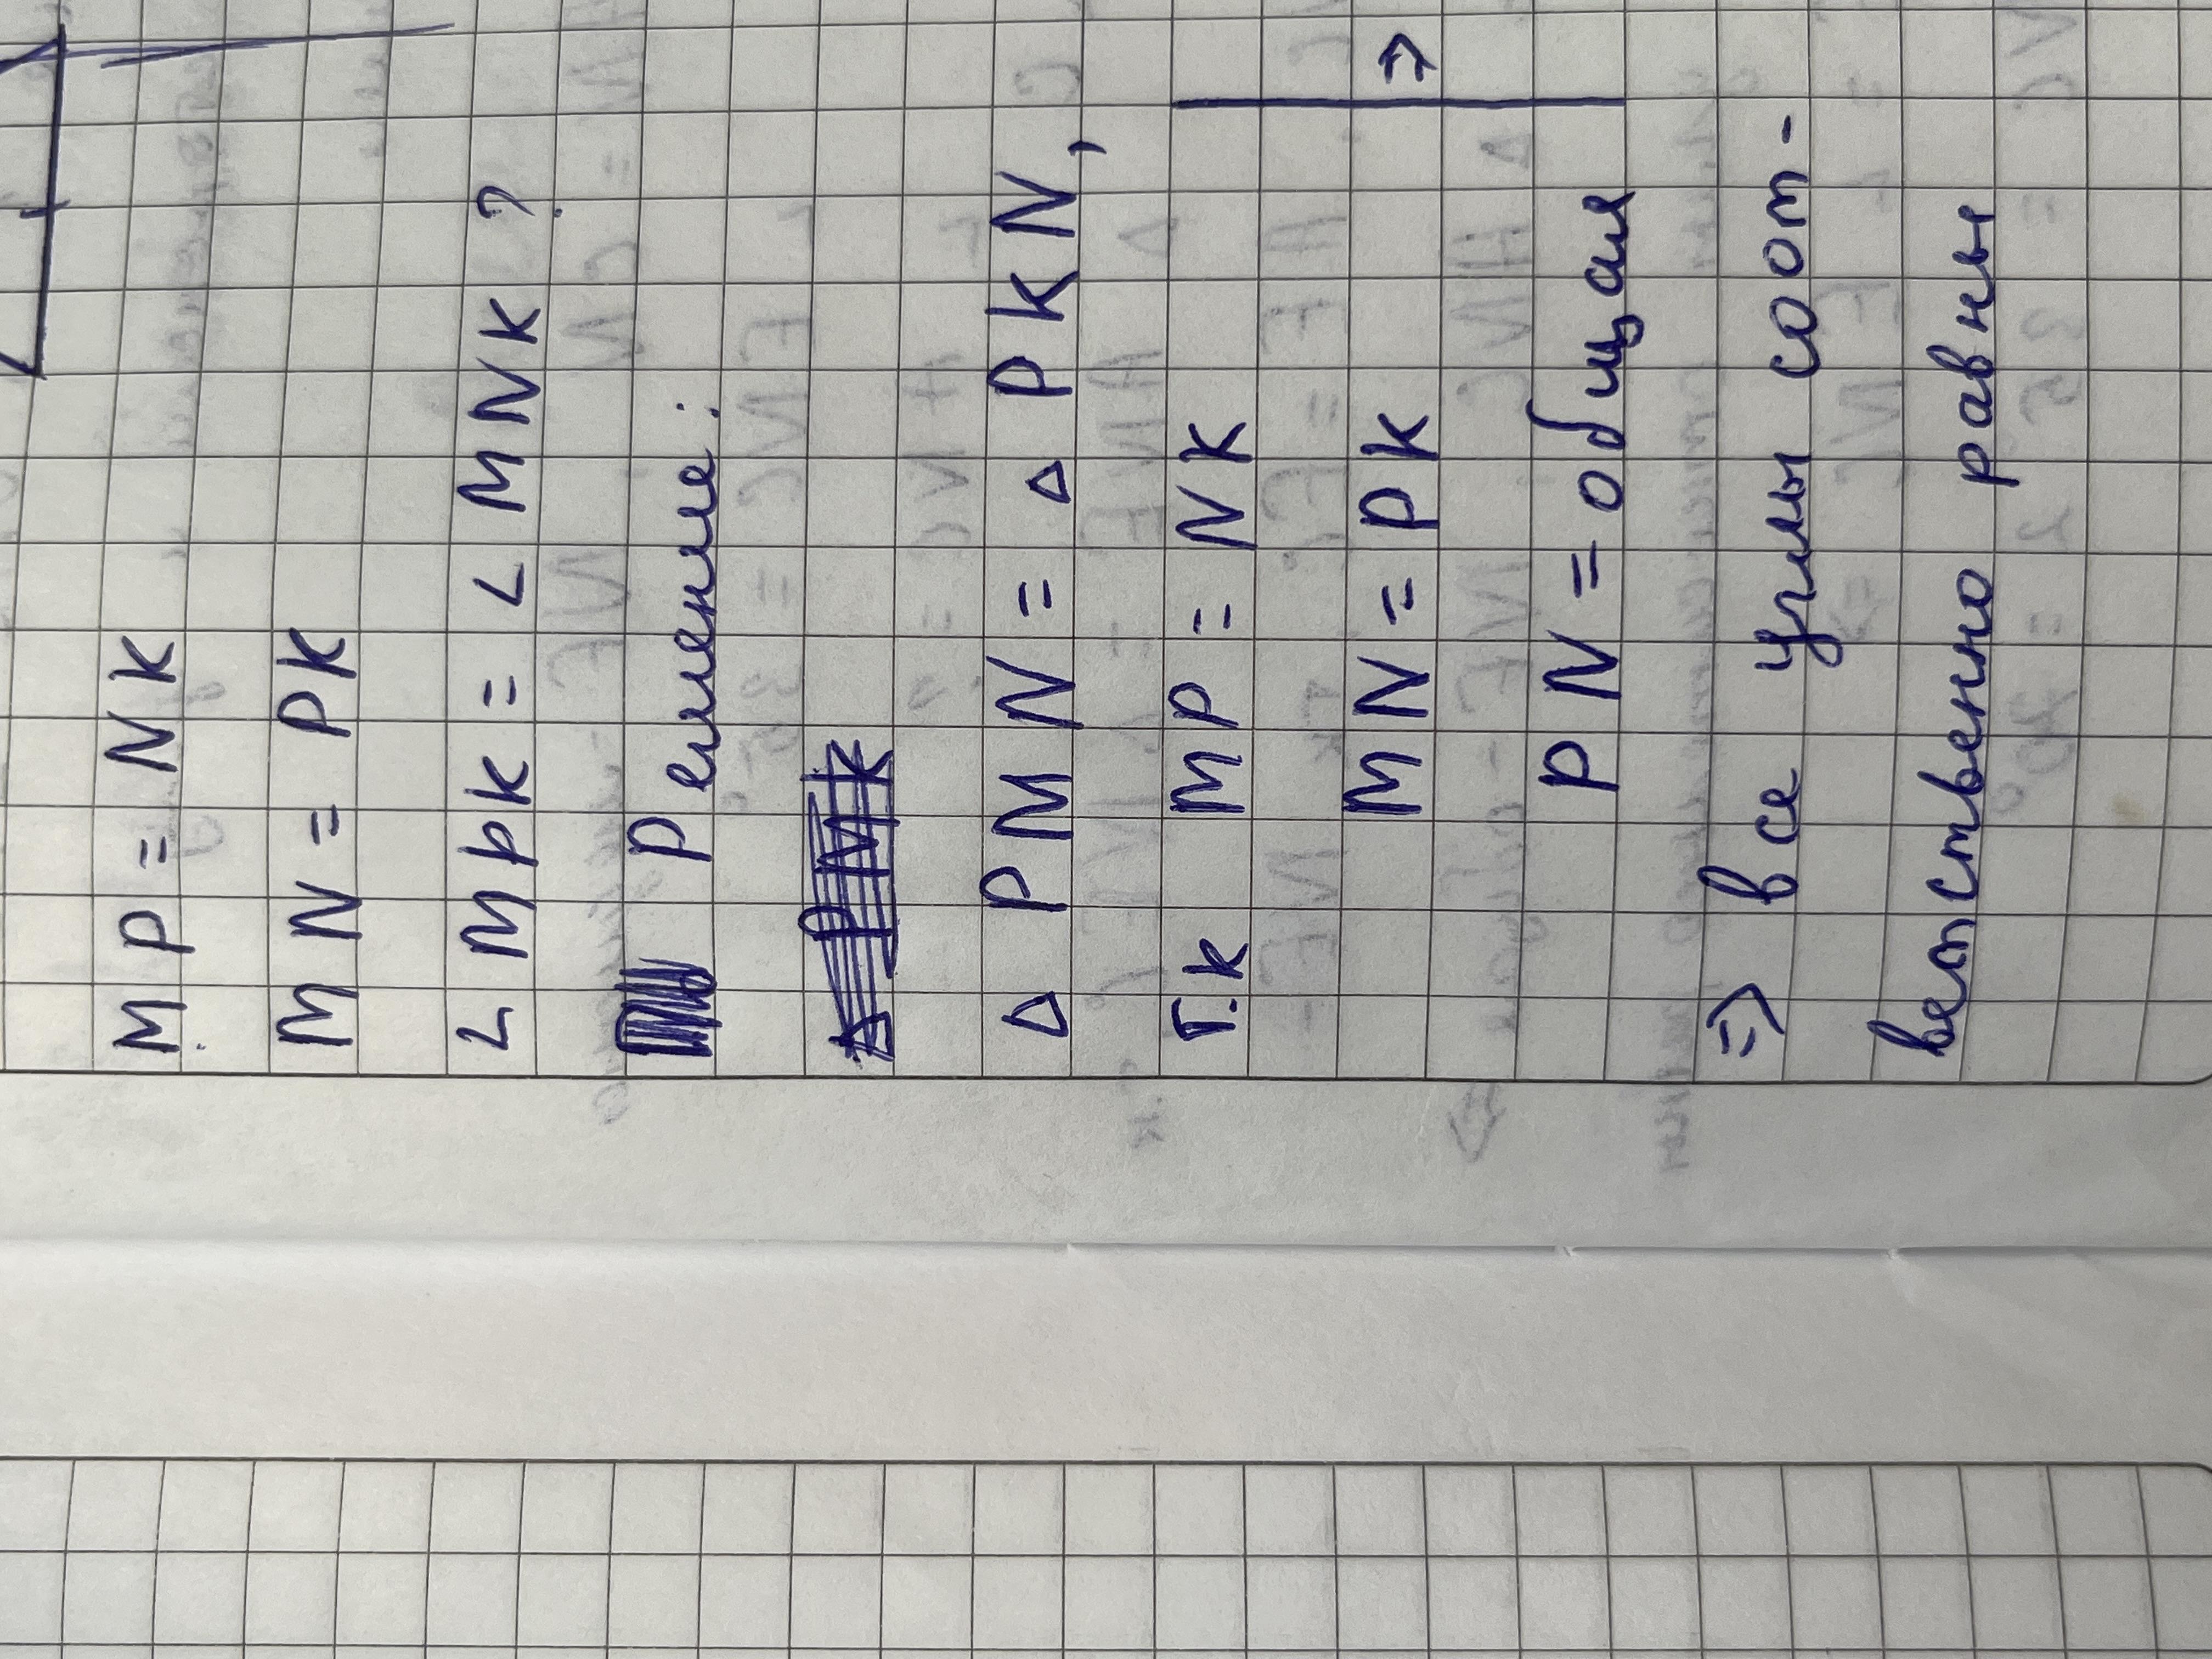 MP = NK
MN = PK
∠ MPK = ∠ MNK ?
Решение:
△ PMN = △ PKN,
т.к MP = NK
MN = PK ⇒
PN = общая
⇒ все углы соот-
ветственно равны